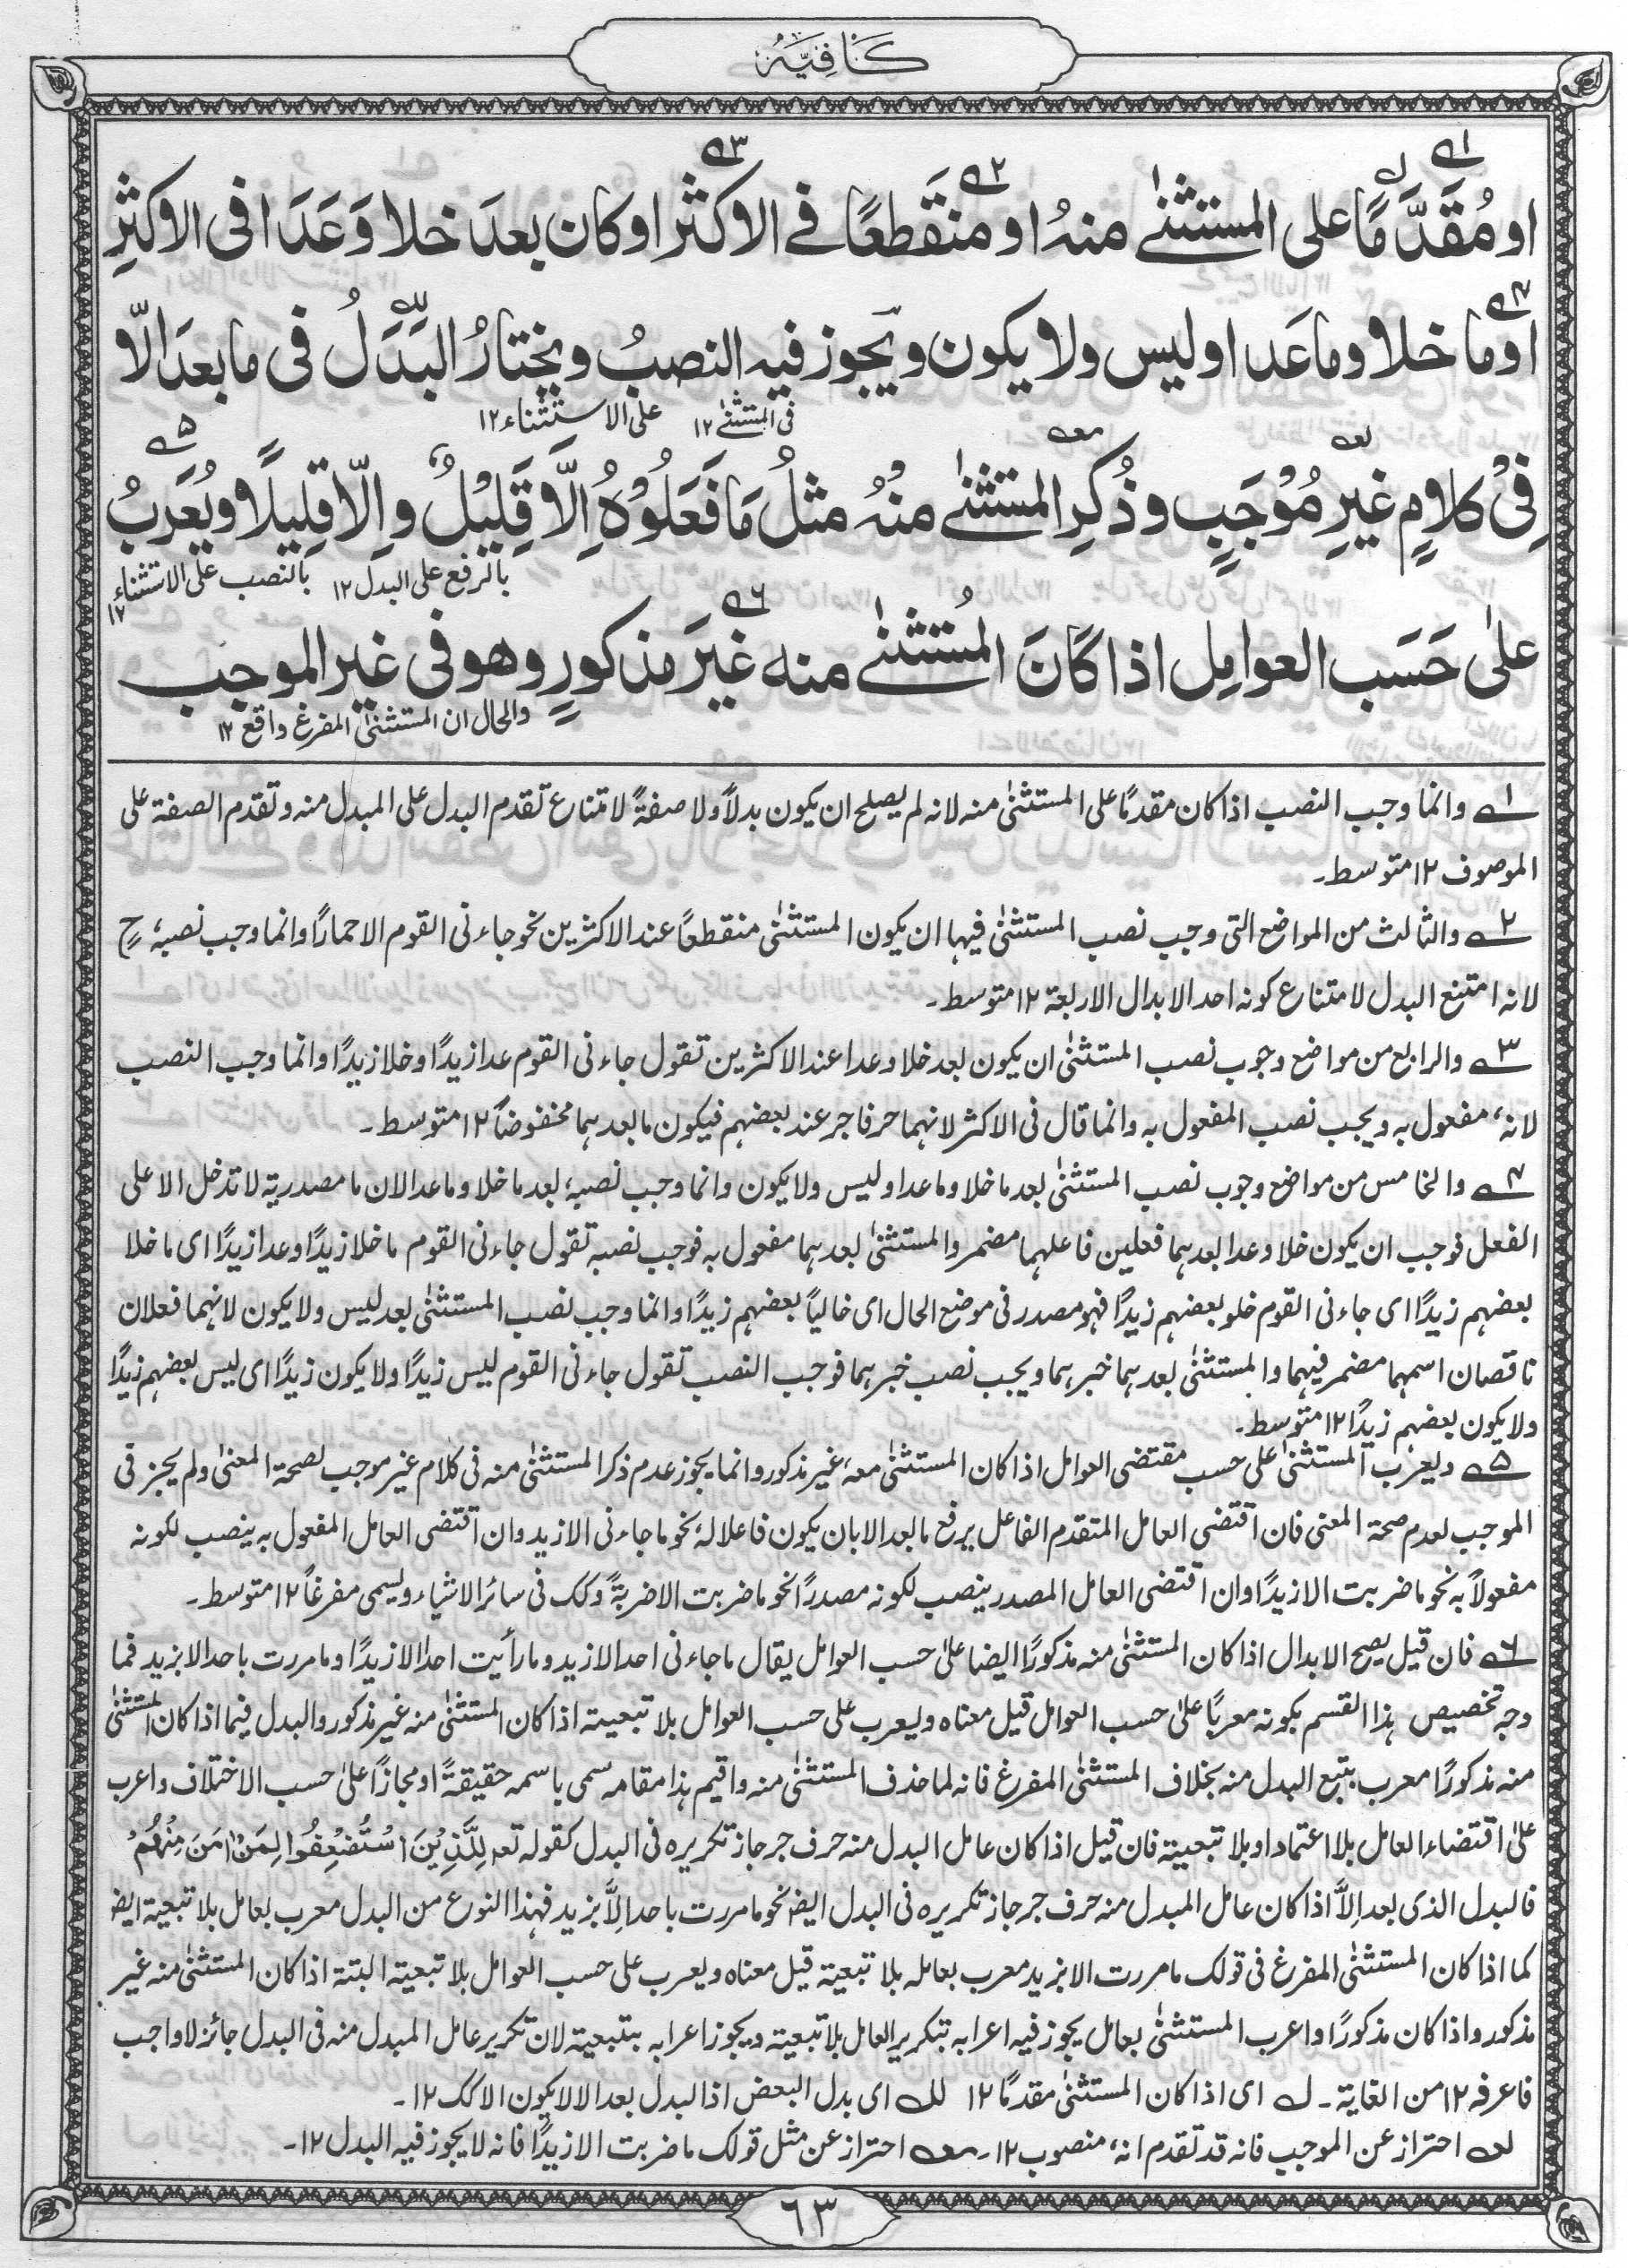 كَافِيَه
او مُقَدَّمًا على المستثنىٰ منهُ او منقَطعًا في الاكثر او كان بعدَ خلا وَعَدَا فى الاكثرِ
اوما خلا وما عَدا او ليس ولا يكون ويجوز فيه النصبُ ويختارُ البَدَلُ فى ما بعدَ الّا
فى المستثنىٰ ١٢ على الاستثناء ١٢
فِىْ كلامٍ غيرِ مُوْجَبٍ وذُكِرِ المستثنىٰ منْهُ مثلُ مَا فَعَلُوْهُ اِلَّا قَلِيْلٌ و اِلّا قِليلًا ويُعرَبُ
بالرفع على البدل ١٢ بالنصب على الاستثناء ١٢
علىٰ حَسَب العوامِل اذا كَانَ المُستثنىٰ منه غيرَ مذكورٍ وهو فى غير الموجب
والحال ان المستثنىٰ المفرغ واقع ١٢
١؎ وانما وجب النصب اذا كان مقدمًا على المستثنىٰ منه لانه لم يصلح ان يكون بدلاً ولا صفةً لامتناع تقدم البدل على المبدل منه وتقدم الصفة على
الموصوف ١٢ متوسط۔
٢؎ والثالث من المواضع التى وجب نصب المستثنىٰ فيها ان يكون المستثنىٰ منقطعاً عند الاكثرين نحو جاءنى القوم الا حمارًا وانما وجب نصبه، ح
لانه امتنع البدل لامتناع كونه احد الابدال الاربعة ١٢ متوسط۔
٣؎ والرابع من مواضع وجوب نصب المستثنىٰ ان يكون بعد خلا وعدا عند الاكثرين تقول جاءنى القوم عدا زيدًا وخلا زيدًا وانما وجب النصب
لانه، مفعول به ويجب نصب المفعول به وانما قال فى الاكثر لانهما حرفا جر عند بعضهم فيكون ما بعدهما مخفوضاً ١٢ متوسط۔
٤؎ والخامس من مواضع وجوب نصب المستثنىٰ بعد ما خلا وما عدا وليس ولا يكون وانما وجب نصبه، بعد ما خلا وما عدا لان ما مصدرية لا تدخل الا على
الفعل فوجب ان يكون خلا وعدا بعدهما فعلين فاعلهما مضمر والمستثنىٰ بعدهما مفعول به فوجب نصبه تقول جاءنى القوم ما خلا زيدًا وعدا زيدًا اى ما خلا
بعضهم زيدًا اى جاءنى القوم خلو بعضهم زيدًا فهو مصدر فى موضع الحال اى خالياً بعضهم زيدًا وانما وجب نصب المستثنىٰ بعد ليس ولا يكون لانهما فعلان
ناقصان اسمهما مضمر فيهما والمستثنىٰ بعدهما خبرهما ويجب نصب خبرهما فوجب النصب تقول جاءنى القوم ليس زيدًا ولا يكون زيدًا اى ليس بعضهم زيدًا
ولا يكون بعضهم زيدًا ١٢ متوسط۔
٥؎ ويعرب المستثنىٰ على حسب مقتضى العوامل اذا كان المستثنىٰ معه، غير مذكور وانما يجوز عدم ذكر المستثنىٰ منه فى كلام غير موجب لصحة المعنىٰ ولم يجز فى
الموجب لعدم صحة المعنى فان اقتضى العامل المتقدم الفاعل يرفع ما بعد الا بان يكون فاعلا لهٗ نحو ما جاءنى الا زيد وان اقتضى العامل المفعول به ينصب لكونه
مفعولاً به نحو ما ضربت الا زيدًا وان اقتضى العامل المصدر ينصب لكونه مصدرًا نحو ما ضربت الا ضربةً وكك فى سائر الاشياء ويسمى مفرغاً ١٢ متوسط۔
٦؎ فان قيل يصح الابدال اذا كان المستثنىٰ منه مذكورًا ايضا علىٰ حسب العوامل يقال ما جاءنى احد الا زيد وما رأيت احدًا الا زيدًا وما مررت باحد الا بزيد فما
وجه تخصيص هذا القسم بكونه معربًا علىٰ حسب العوامل قيل معناه ويعرب على حسب العوامل بلا تبعية اذا كان المستثنىٰ منه غير مذكور والبدل فيما اذا كان المستثنىٰ
منه مذكورًا معرب بتبع البدل منه بخلاف المستثنىٰ المفرغ فانه لما حذف المستثنىٰ منه واقيم هذا مقامه سمى باسمه حقيقةً او مجازاً علىٰ حسب الاختلاف واعرب
علىٰ اقتضاء العامل بلا اعتماد او بلا تبعية فان قيل اذا كان عامل البدل منه حرف جر جاز تكريره فى البدل كقوله تعہ لِلَّذِيْنَ اسْتُضْعِفُوا لِمَنْ اٰمَنَ مِنْهُمْ
فالبدل الذى بعد اِلاَّ اذا كان عامل المبدل منه حرف جر جاز تكريره فى البدل ايضً نحو ما مررت باحد اِلاَّ بزيد فهذا النوع من البدل معرب بعامل بلا تبعية ايضً
كما اذا كان المستثنىٰ المفرغ فى قولك ما مررت الا بزيد معرب بعامله بلا تبعية قيل معناه ويعرب على حسب العوامل بلا تبعية البتة اذا كان المستثنىٰ منه غير
مذكور واذا كان مذكورًا واعرب المستثنىٰ بعامل يجوز فيه اعرابه بتكرير العامل بلا تبعية ويجوز اعرابه بتبعية لان تكرير عامل المبدل منه فى البدل جائز لا واجب
فاعرفه ١٢ من الغاية۔ ل؎ اى اذا كان المستثنىٰ مقدمًا ١٢ لل؎ اى بدل البعض اذ البدل بعد الا لا يكون الا كك ١٢۔
لعہ احتراز عن الموجب فانه قد تقدم انه، منصوب ١٢۔ معہ احتراز عن مثل قولك ما ضربت الا زيدًا فانه لا يجوز فيه البدل ١٢۔
٦٣